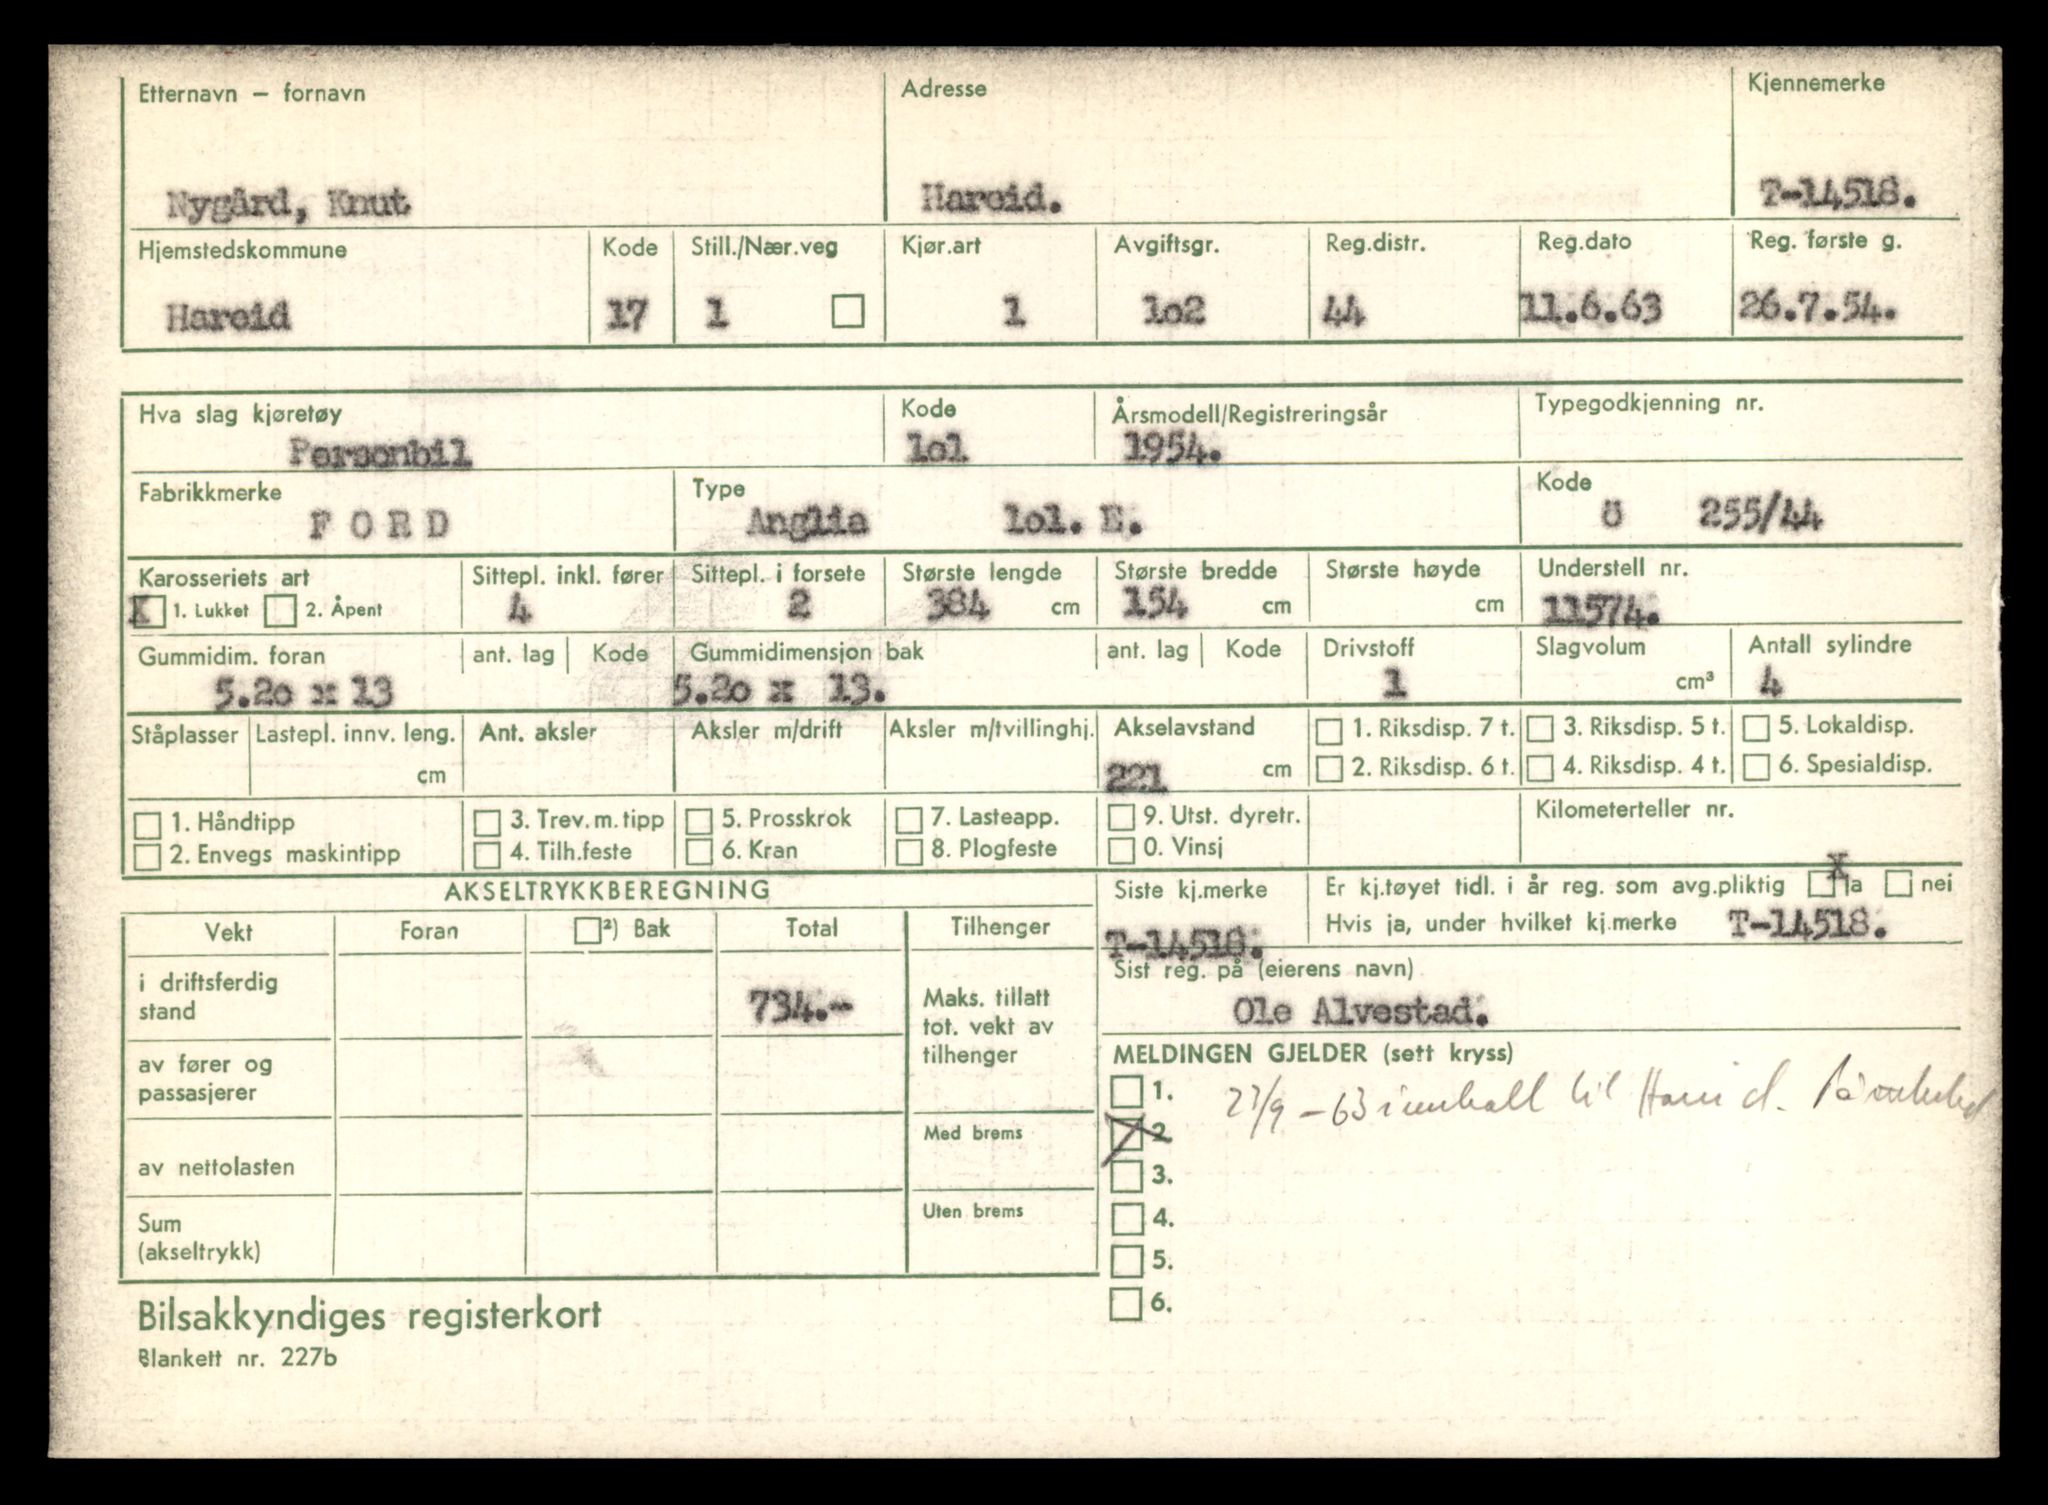 Etternavn – fornavn Adresse Kjennemerke
Nygård, Knut Hareid. T-14518.
Hjemstedskommune Kode Still./Nær.veg Kjør.art Avgiftsgr. Reg.distr. Reg.dato Reg. første g.
Hareid 17 1 1 1o2 44 11.6.63 26.7.54.
Hva slag kjøretøy Kode Årsmodell/Registreringsår Typegodkjenning nr.
Personbil lol 1954.
Fabrikkmerke Type Kode
F O R D Anglia lol. E. ö 255/44
Karosseriets art Sittepl. inkl. fører Sittepl. i forsete Største lengde Største bredde Største høyde Understell nr.
X 1. Lukket 2. Åpent 4 2 384 cm 154 cm cm 11574.
Gummidim. foran ant. lag Kode Gummidimensjon bak ant. lag Kode Drivstoff Slagvolum Antall sylindre
5.2o x 13 5.2o x 13. 1 cm³ 4
Ståplasser Lastepl. innv. leng. Ant. aksler Aksler m/drift Aksler m/tvillinghj. Akselavstand 1. Riksdisp. 7 t. 3. Riksdisp. 5 t. 5. Lokaldisp.
cm 221 cm 2. Riksdisp. 6 t. 4. Riksdisp. 4 t. 6. Spesialdisp.
1. Håndtipp 3. Trev. m. tipp 5. Prosskrok 7. Lasteapp. 9. Utst. dyretr. Kilometerteller nr.
2. Envegs maskintipp 4. Tilh.feste 6. Kran 8. Plogfeste 0. Vinsj
AKSELTRYKKBEREGNING Siste kj.merke Er kj.tøyet tidl. i år reg. som avg.pliktig X ja nei
Vekt Foran ²) Bak Total Tilhenger T-14518. Hvis ja, under hvilket kj.merke T-14518.
Sist reg. på (eierens navn)
i driftsferdig stand 734.- Maks. tillatt tot. vekt av tilhenger Ole Alvestad.
av fører og passasjerer MELDINGEN GJELDER (sett kryss)
1. 27/9 – 63 innkalt til Hareid.
Med brems X 2.
av nettolasten 3.
Sum (akseltrykk) Uten brems 4.
5.
6.
Bilsakkyndiges registerkort
Blankett nr. 227b